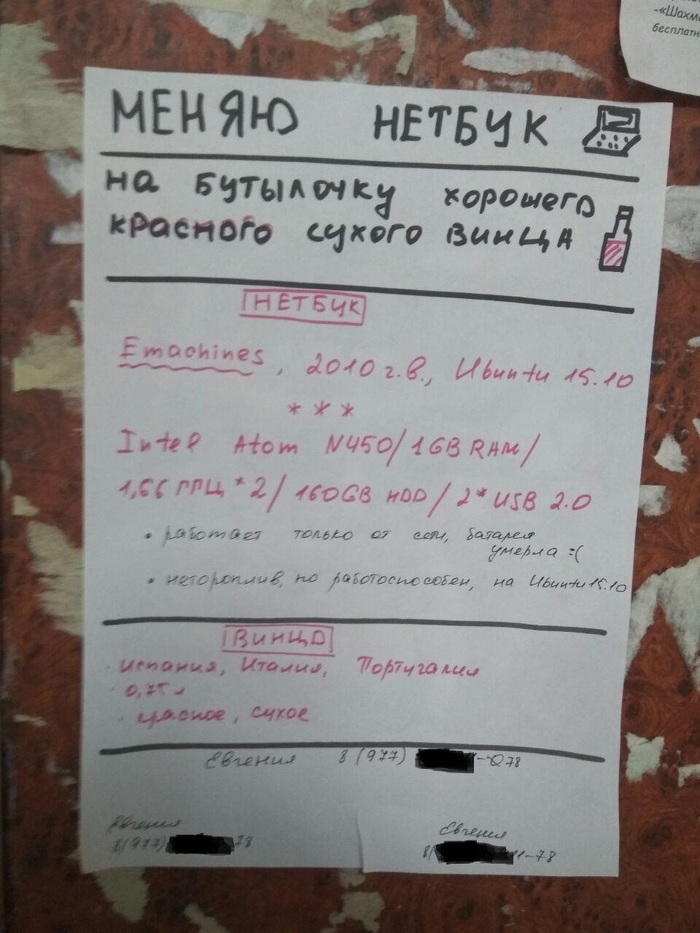 -«Шахм
бесплатн
МЕНЯЮ НЕТБУК
на бутылочку хорошего
красного сухого винца
НЕТБУК
Emachines, 2010 г.в., Ubuntu 15.10
* * *
Intel Atom N450/1GB RAM/
1,66 ГГЦ *2/ 160GB HDD/ 2* USB 2.0
• работает только от сети, батарея
умерла =(
• нетороплив, но работоспособен, на Ubuntu 15.10
ВИНЦО
· Испания, Италия, Португалия
· 0,75 л
· красное, сухое
Евгения 8(977) 78
Евгения
8(977) 78
Евгения
8( 11-78